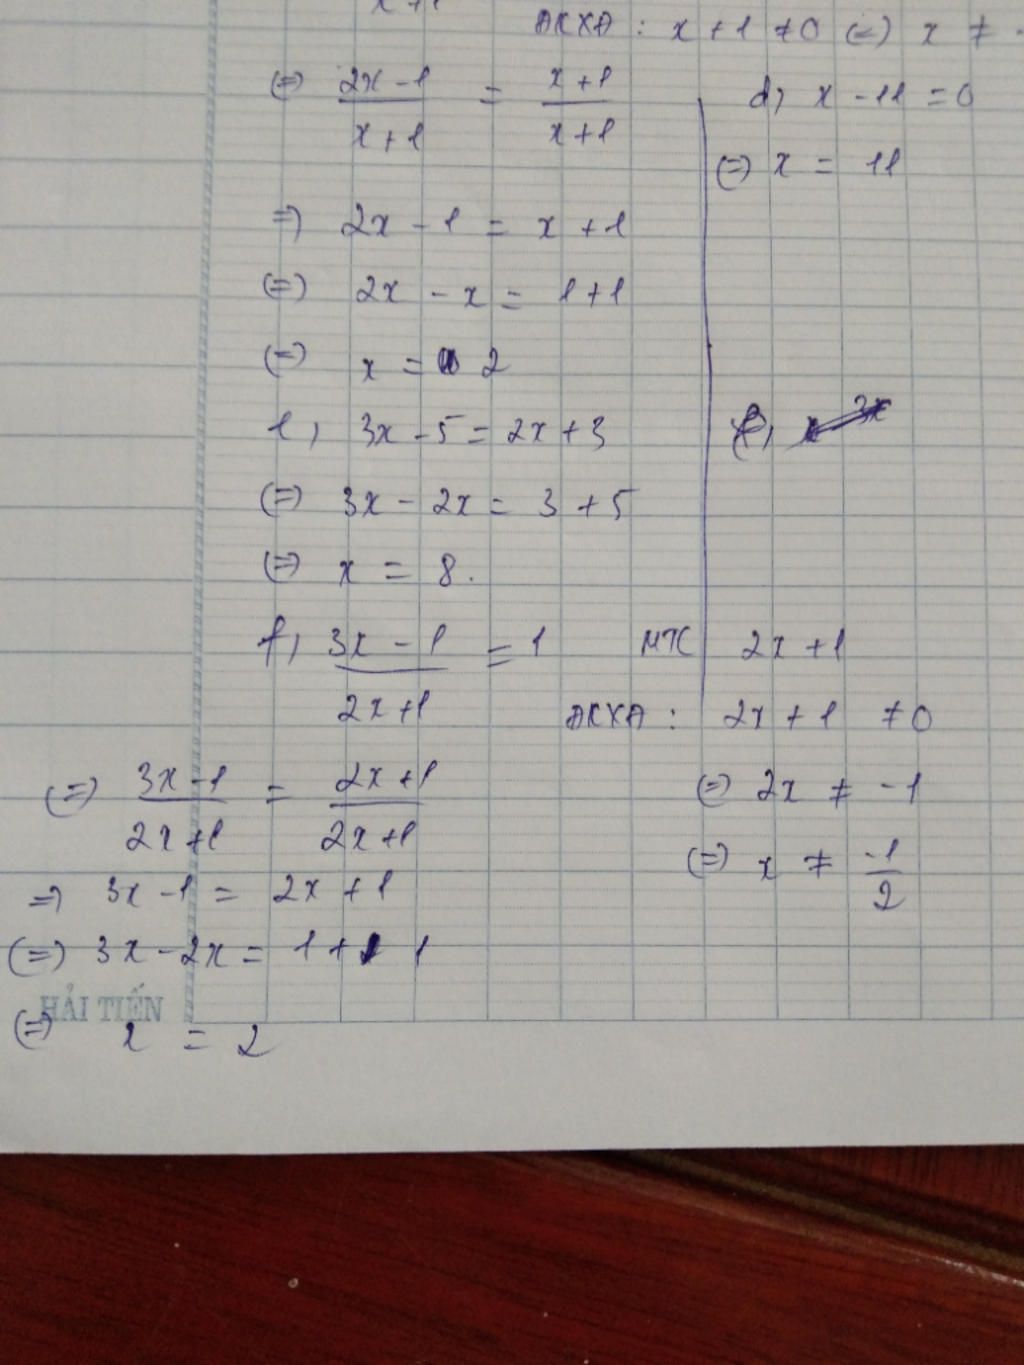 x+1
ĐKXĐ : x + 1 ≠ 0 (=) x ≠ -
(=) \frac{2x - 1}{x + 1} = \frac{x + 1}{x + 1}
=) 2x - 1 = x + 1
(=) 2x - x = 1 + 1
(=) x = 2
d, x - 11 = 0
(=) x = 11
e, 3x - 5 = 2x + 3
(=) 3x - 2x = 3 + 5
(=) x = 8.
f, \frac{3x - 1}{2x + 1} = 1
MTC 2x + 1
ĐKXĐ : 2x + 1 ≠ 0
(=) 2x ≠ -1
(=) x ≠ \frac{-1}{2}
(=) \frac{3x - 1}{2x + 1} = \frac{2x + 1}{2x + 1}
=) 3x - 1 = 2x + 1
(=) 3x - 2x = 1 + 1
(=) x = 2
HẢI TIẾN